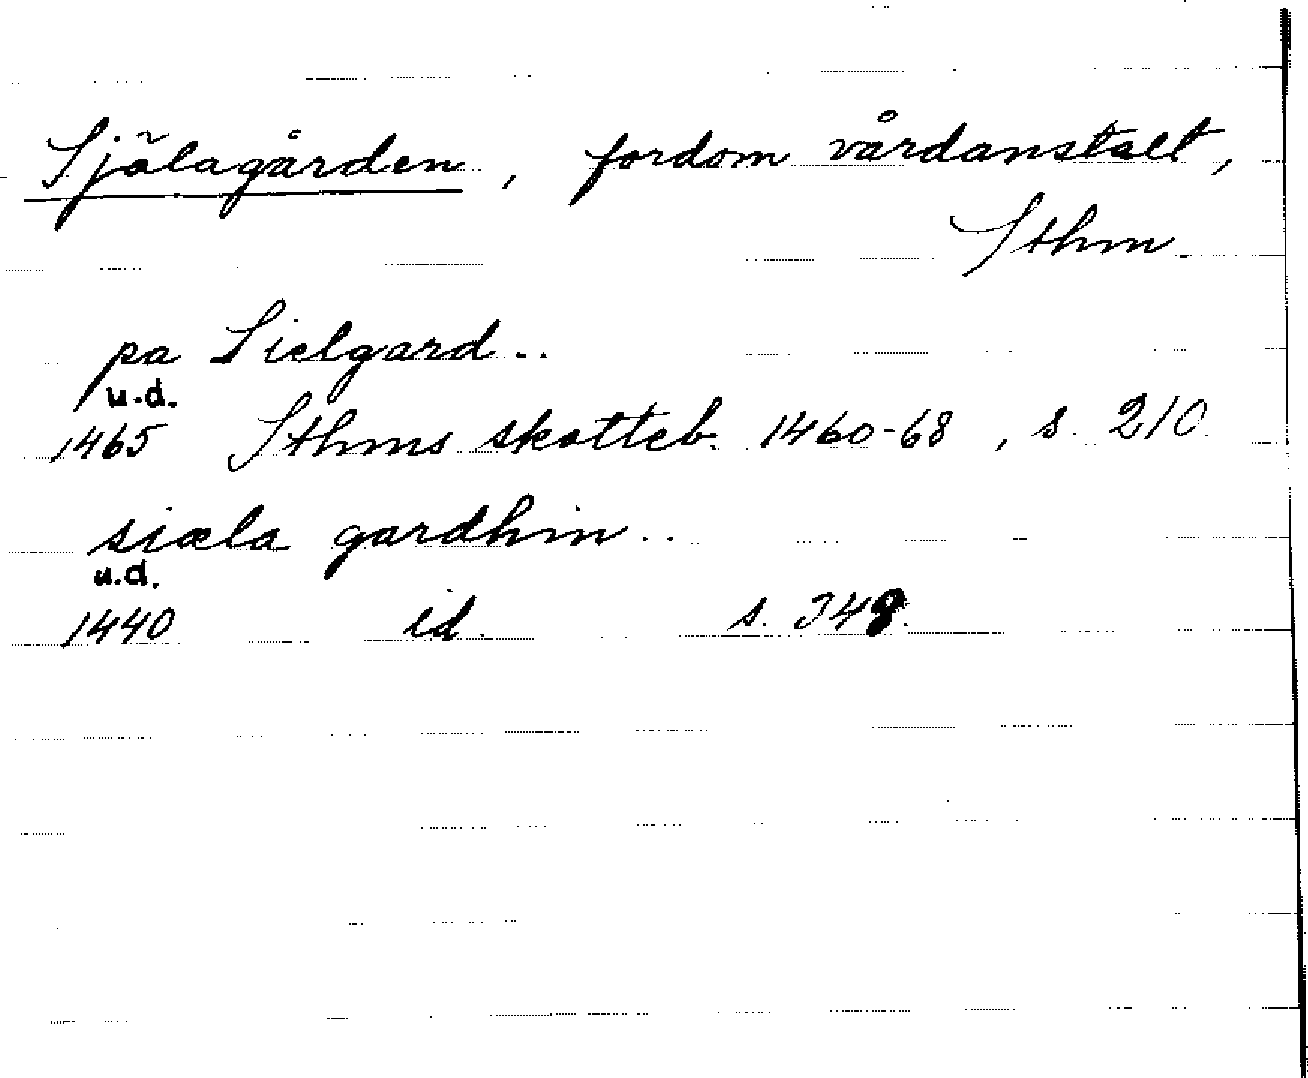 Själagården, fordom vårdanstalt,
Sthm
pa Sielgard..
u.d.
1465 Sthms skotteb. 1460-68, s. 210
siæla gardhin..
u.d.
1440 id. s. 348.